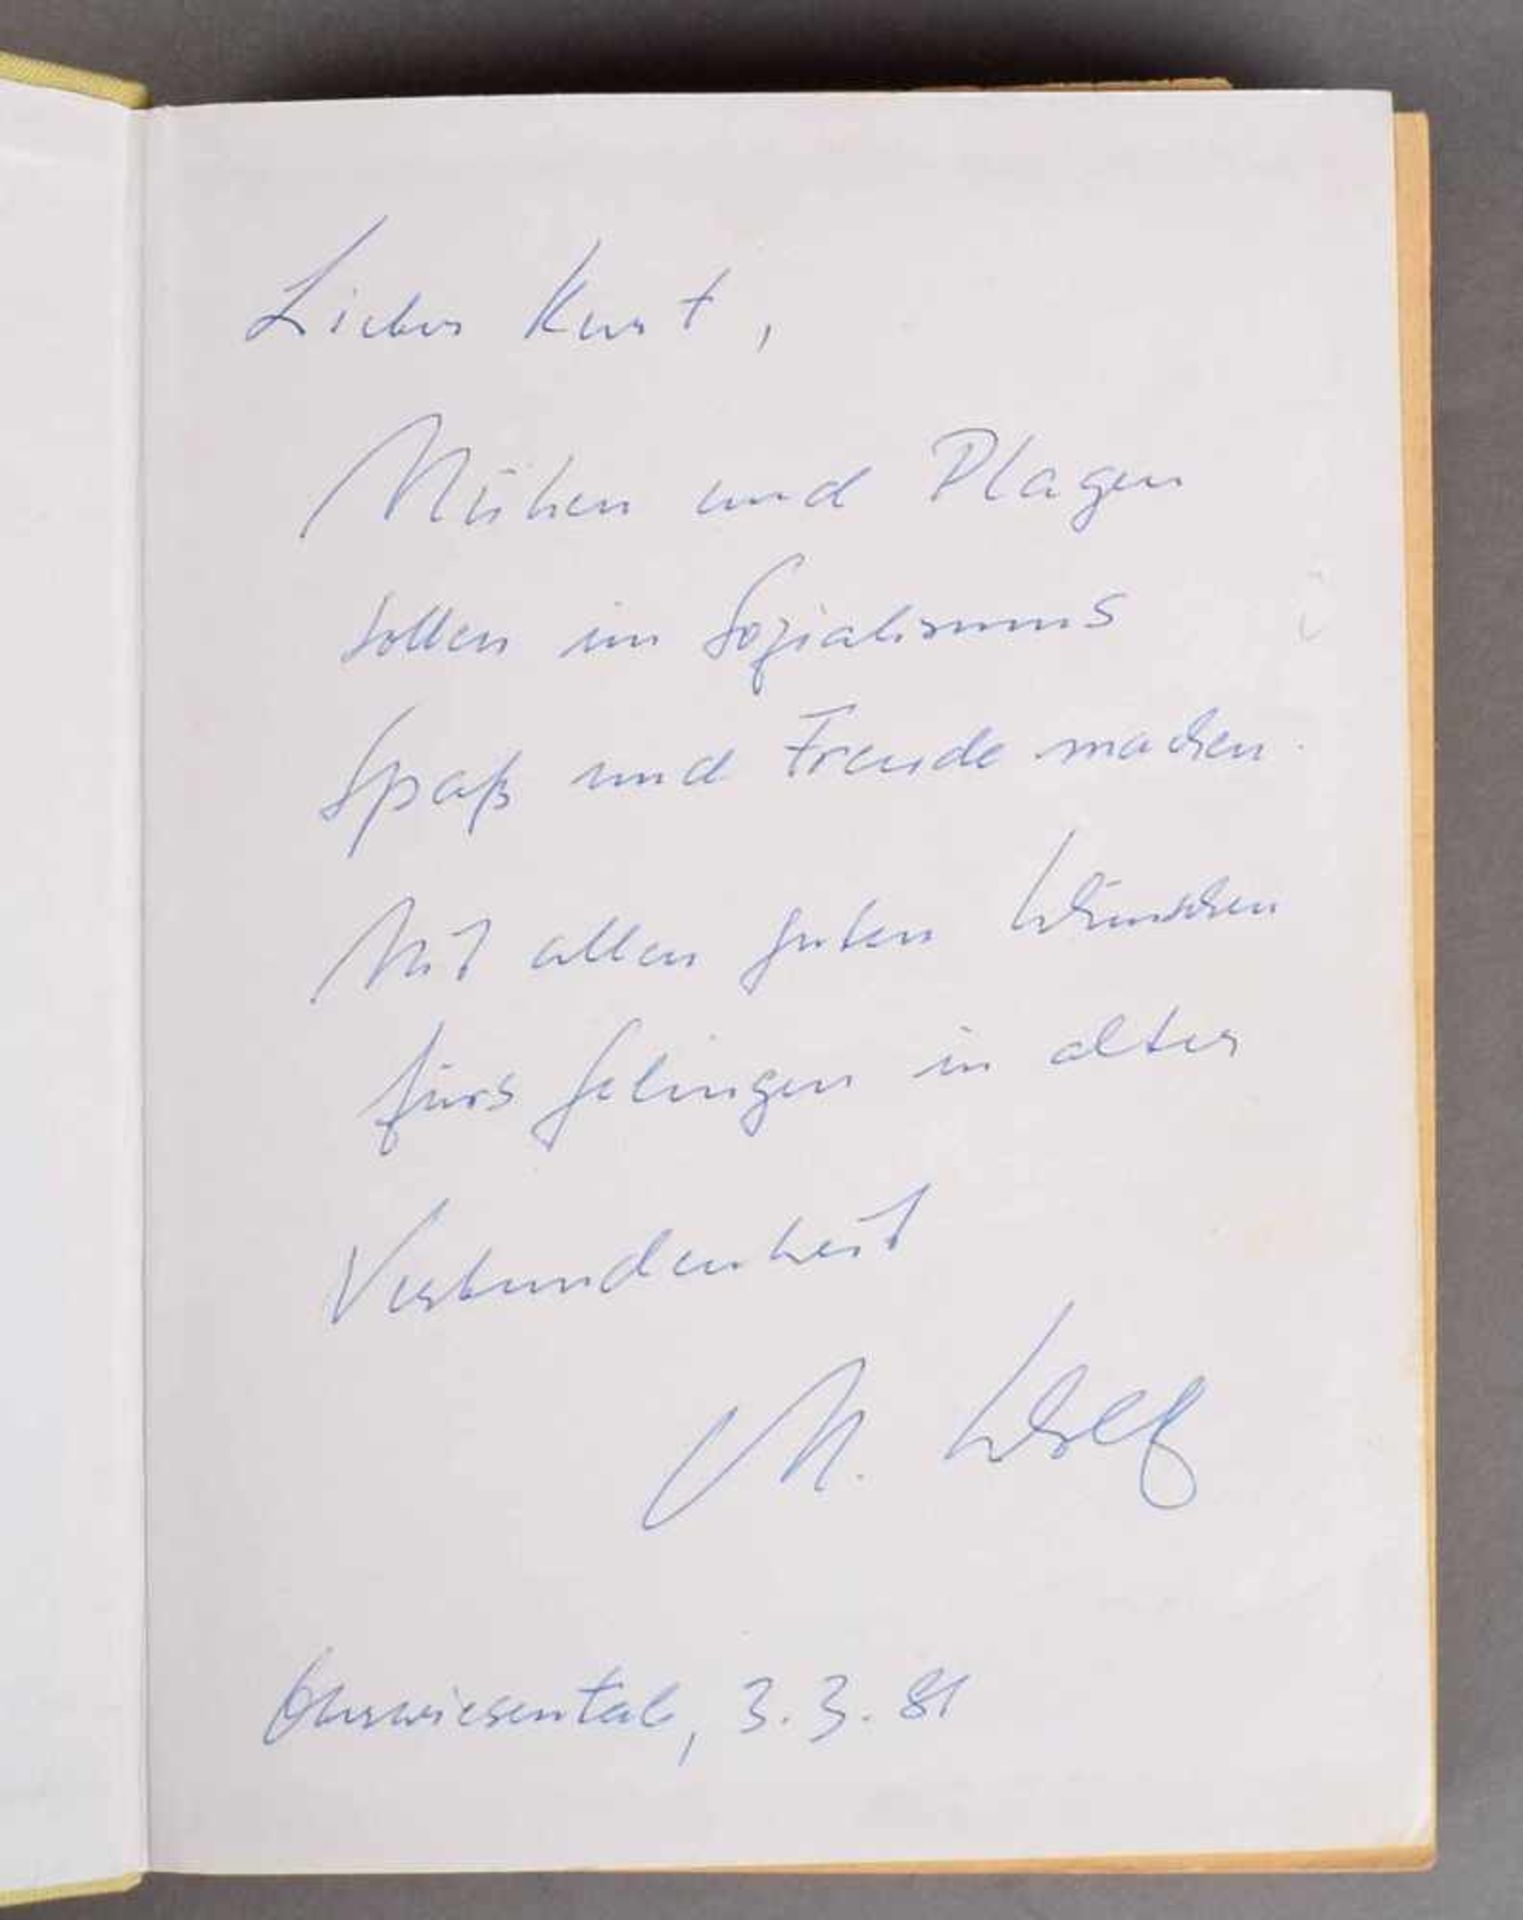 Lieber Kurt,
Mühen und Plagen
sollen im Sozialismus
Spaß und Freude machen.
Mit allen guten Wünschen
fürs Gelingen in alter
Verbundenheit
M. Wolf
Oberwiesental, 3.3.81